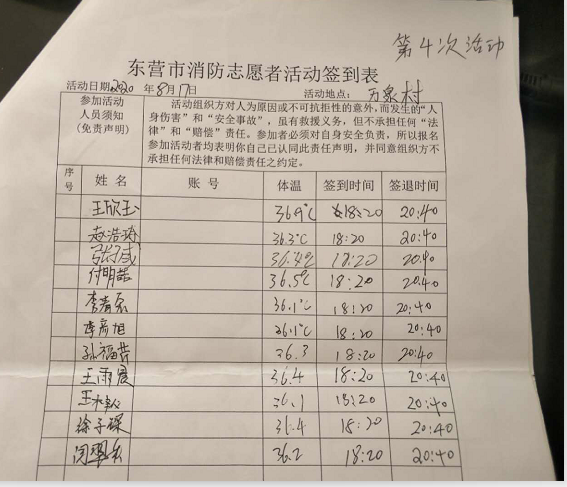 第4次活动
东营市消防志愿者活动签到表
活动日期2020年8月17日 活动地点：万泉村
参加活动人员须知（免责声明） 活动组织方对人为原因或不可抗拒性的意外，而发生的“人
身伤害”和“安全事故”，虽有救援义务，但不承担任何“法
律”和“赔偿”责任。参加者必须对自身安全负责，所以报名
参加活动者均表明你自己已认同此责任声明，并同意组织方不
承担任何法律和赔偿责任之约定。
序号 姓名 账号 体温 签到时间 签退时间
王欣玉 36.9℃ 18:20 20:40
赵浩 36.3℃ 18:20 20:40
36.4℃ 18:20 20:40
付明喆 36.5℃ 18:20 20:40
李 36.1℃ 18:20 20:40
彦旭 36.1℃ 18:20 20:40
孙福 36.3 18:20 20:40
王雨 36.4 18:20 20:40
王 36.1 18:20 20:40
徐子琛 36.4 18:20 20:40
闫 36.2 18:20 20:40